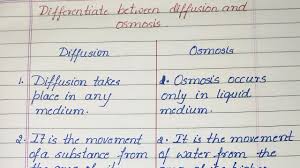 Differentiate between diffusion and
osmosis
Diffusion Osmosis
1. Diffusion takes 1. Osmosis occurs
place in any only in liquid
medium. medium.
2. It is the movement 2. It is the movement
of a substance from of water from the